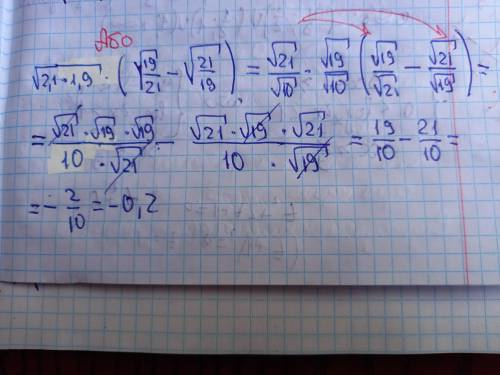 Або
√2,1·1,9 · (√19/21 − √21/19) = √21/√10 · √19/√10 (√19/√21 − √21/√19) =
= √21·√19·√19/10·√21 − √21·√19·√21/10·√19 = 19/10 − 21/10 =
= − 2/10 = −0,2